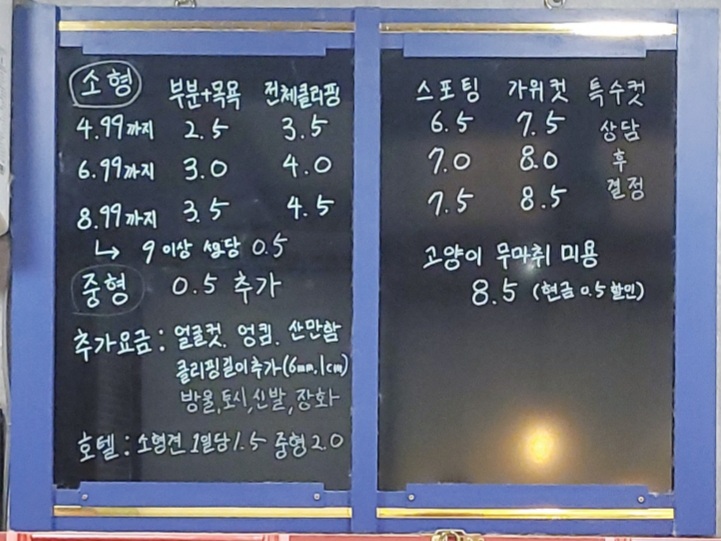 소형 부분+목욕 전체클리핑
4.99까지 2.5 3.5
6.99까지 3.0 4.0
8.99까지 3.5 4.5
↳ 9 이상 당 0.5
중형 0.5 추가
추가요금 : 얼굴컷. 엉킴. 산만함
클리핑길이추가(6mm, 1cm)
방울, 토시, 신발, 장화
호텔 : 소형견 1일당 1.5 중형 2.0
스포팅 가위컷 특수컷
6.5 7.5 상담
7.0 8.0 후
7.5 8.5 결정
고양이 무마취 미용
8.5 (현금 0.5 할인)